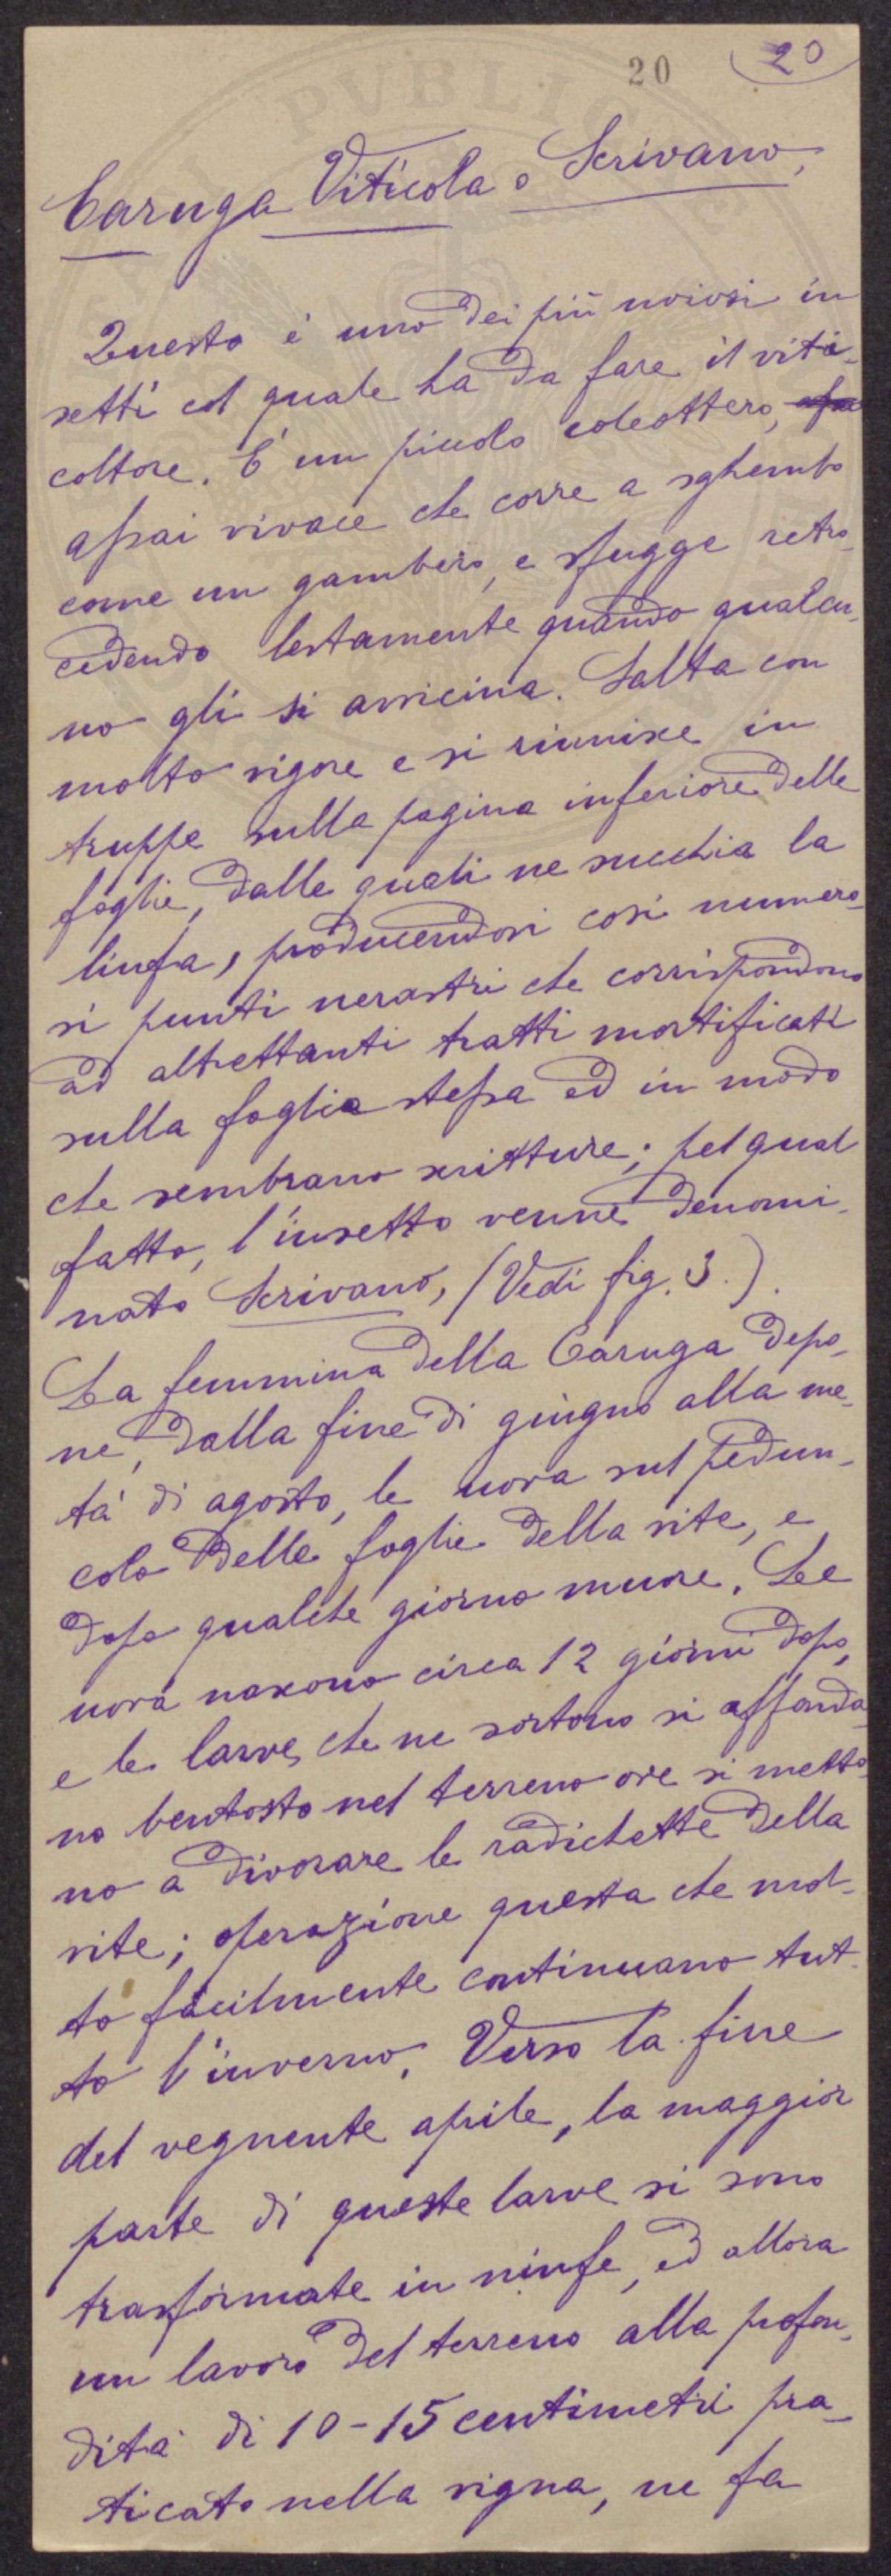 20 20
Caruga Viticola o Scrivano.
Questo è uno dei più noiosi in
setti col quale ha da fare il viti-
coltore. È un piccolo coleottero,
assai vivace che corre a sghembo
come un gambero, e sfugge retro-
cedendo lestamente quando qualcu-
no gli si avvicina. Salta con
molto vigore e si riunisce in
truppe sulla pagina inferiore delle
foglie, dalle quali ne succhia la
linfa, producendosi così numero-
si punti nerastri che corrispondono
ad altrettanti tratti mortificati
sulla foglia stessa ed in modo
che sembrano scritture; pel qual
fatto, l'insetto venne denomi-
nato Scrivano, (Vedi fig. 3.).
La femmina della Caruga depo-
ne, dalla fine di giugno alla me-
tà di agosto, le uova sul pedun-
colo delle foglie della vite, e
dopo qualche giorno muore. Le
uova nascono circa 12 giorni dopo,
e le larve, che ne sortono si affonda-
no bentosto nel terreno ove si metto-
no a divorare le radichette della
vite; operazione questa che mol-
to facilmente continuano tut-
to l'inverno. Verso la fine
del vegnente aprile, la maggior
parte di queste larve si sono
trasformate in ninfe, ed allora
un lavoro del terreno alla profon-
dità di 10-15 centimetri pra-
ticato nella vigna, ne fa